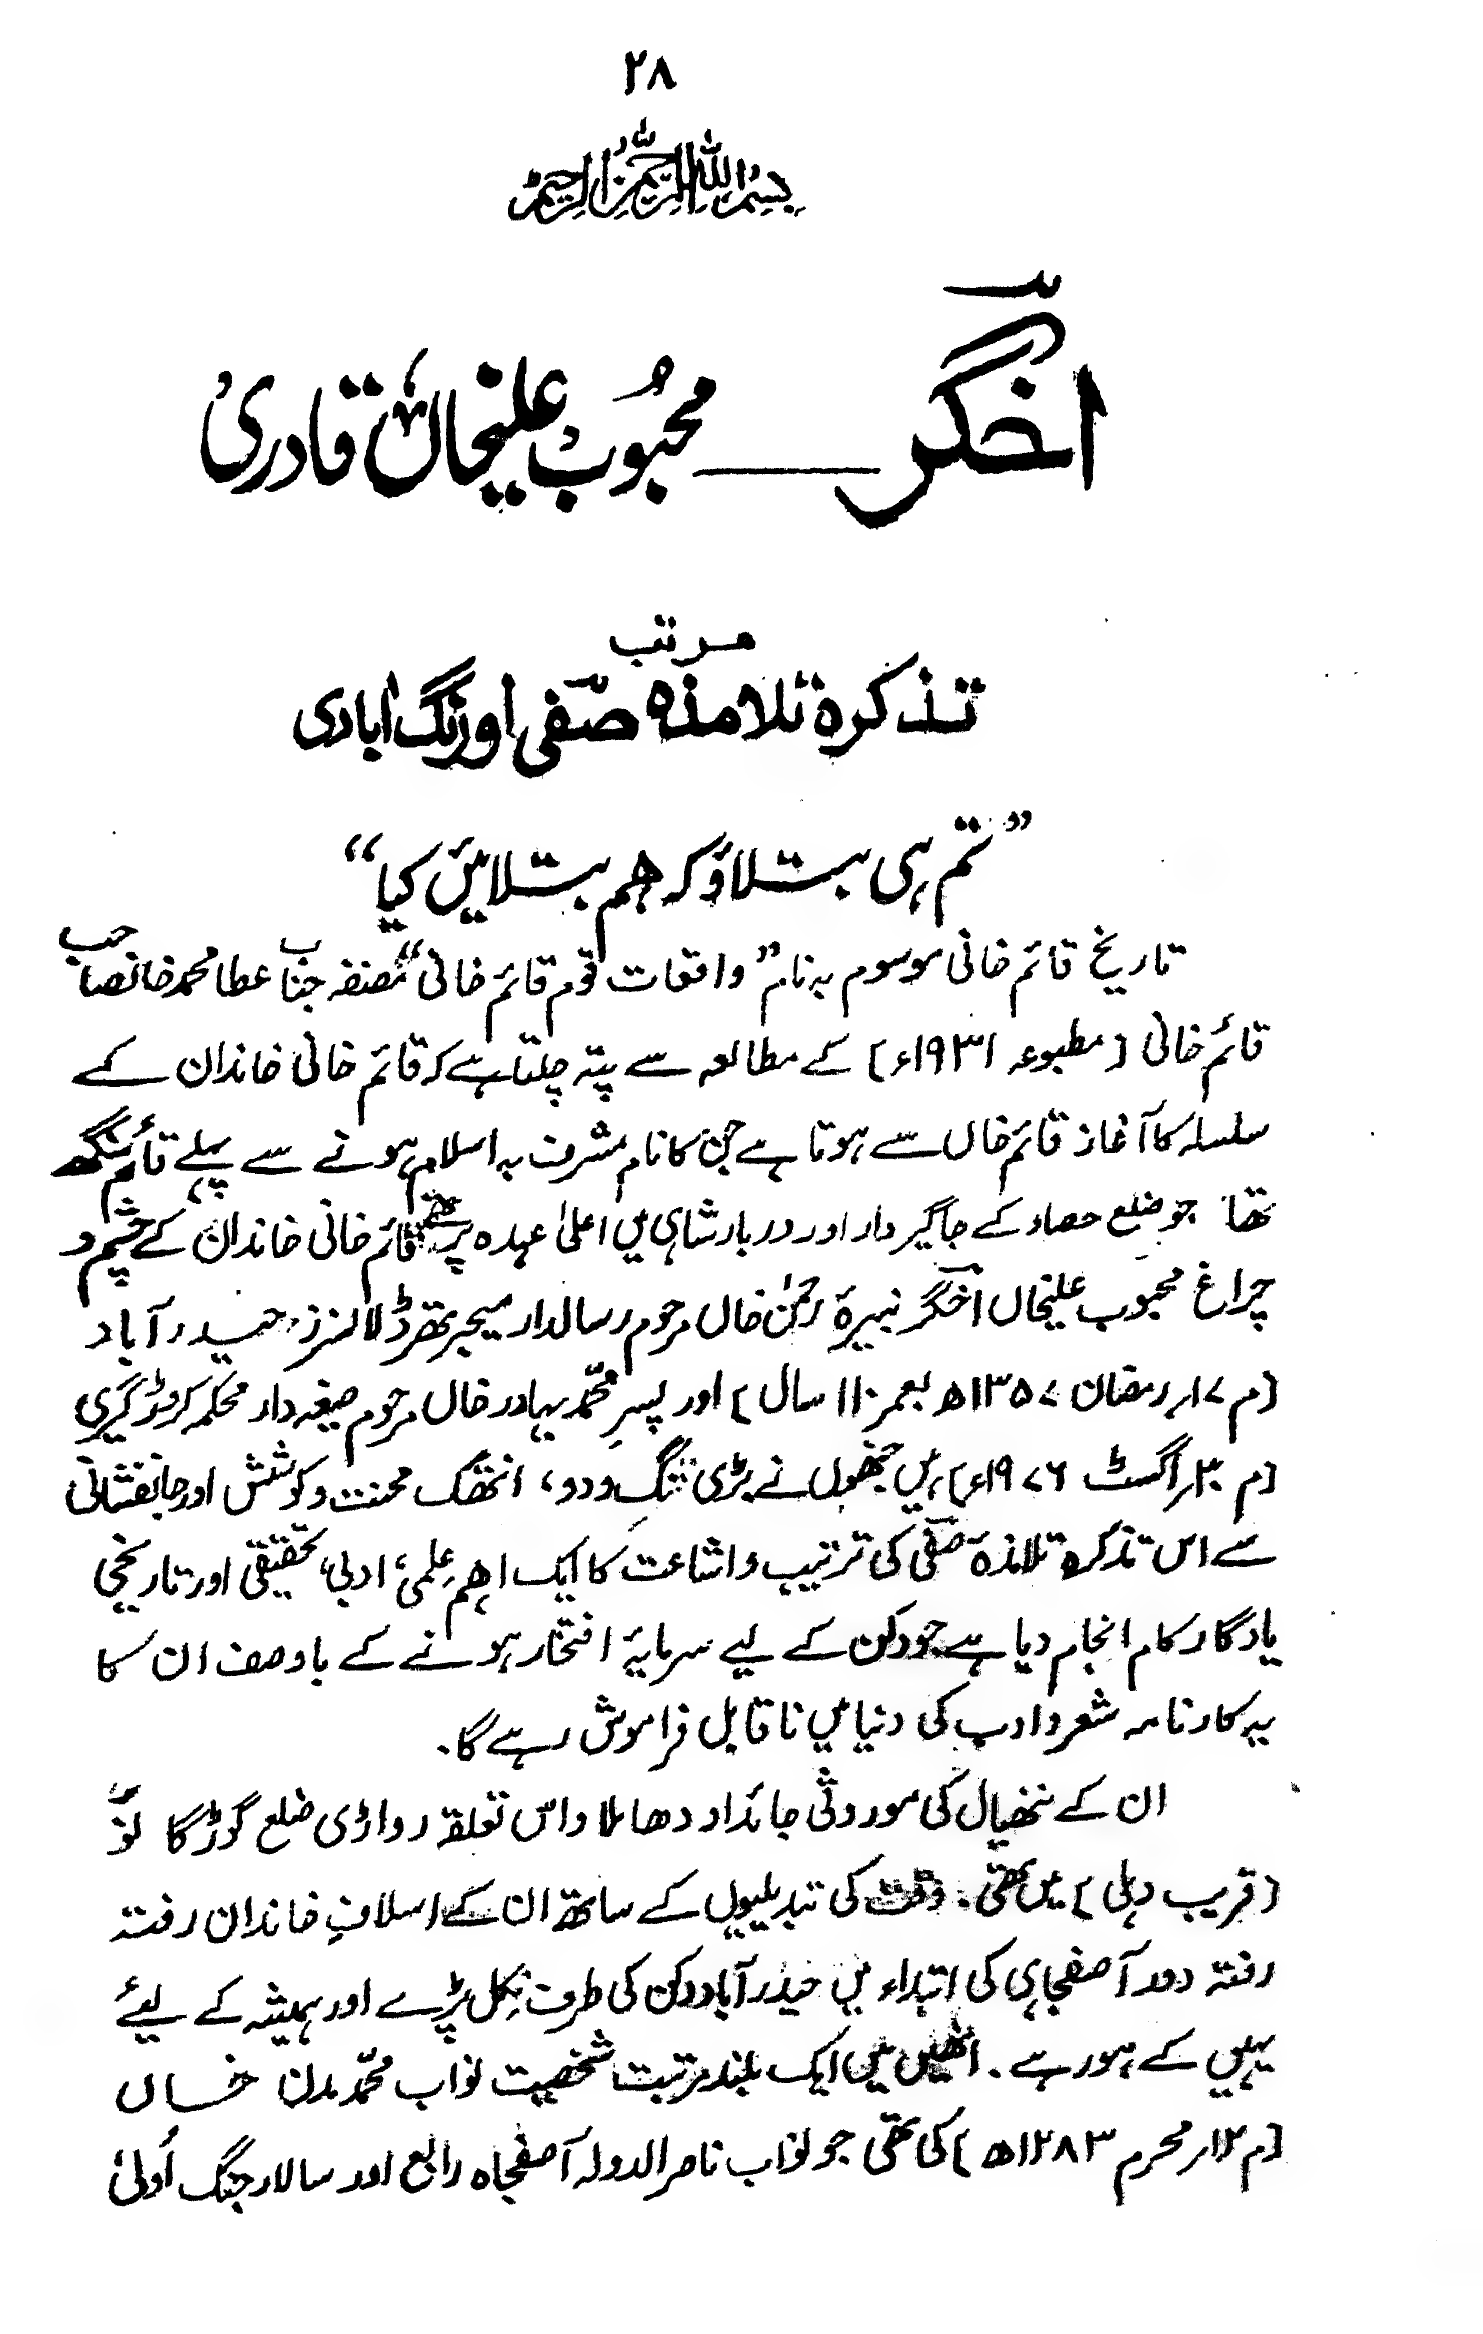 ۲۸
بسم اللہ الرحمن الرحیم
اخگر ___ محبوب علیخاں قادری
مرتب
تذکرہ تلامذہ صفی اورنگ آبادی
”تم ہی بتلاؤ کہ ہم بتلائیں کیا“
تاریخ قائم خانی موسوم بہ نام ”واقعات قوم قائم خانی“ مصنفہ جناب عطا محمد خانصاحب
قائم خانی [مطبوعہ ۱۹۳۱ء] کے مطالعہ سے پتہ چلتا ہے کہ قائم خانی خاندان کے
سلسلہ کا آغاز قائم خاں سے ہوتا ہے جن کا نام مشرف بہ اسلام ہونے سے پہلے قائم سنگھ
تھا جو ضلع حصار کے جاگیر دار اور دربار شاہی میں اعلیٰ عہدہ پر تھے قائم خانی خاندان کے چشم و
چراغ محبوب علیخاں اخگر نبیرۂ رحمٰن خاں مرحوم رسالدار میجر تھرڈ لانسرز، حیدرآباد
[م ۱۷؍ رمضان ۱۳۵۷ھ بعمر ۱۱۰ سال] اور پسرِ محمّد بہادر خاں مرحوم صیغہ دار محکمہ کروڑ گیری
[م ۳۰؍ اگسٹ ۱۹۷۶ء] ہیں جنھوں نے بڑی تگ و دو، انتھک محنت و کوشش اور جانفشانی
سے اس تذکرہ تلامذہ صفی کی ترتیب و اشاعت کا ایک اہم علمی، ادبی، تحقیقی اور تاریخی
یادگار کام انجام دیا ہے جو دکن کے لیے سرمایۂ افتخار ہونے کے باوصف ان کا
یہ کارنامہ شعر و ادب کی دنیا میں ناقابل فراموش رہے گا۔
ان کے ننھیال کی موروثی جائداد دھاملاواس تعلقہ رواڑی ضلع گوڑگانوّ
[قریب دہلی] میں تھی۔ وقت کی تبدیلیوں کے ساتھ ان کے اسلافِ خاندان رفتہ
رفتہ دور آصفجاہی کی ابتداء میں حیدرآباد دکن کی طرف نکل پڑے اور ہمیشہ کے لیئے
یہیں کے ہو رہے۔ انھیں میں ایک بلند مرتبت شخصیت نواب محمّد مدن خاں
[م ۱۲؍ محرم ۱۲۸۳ھ] کی تھی جو نواب ناصر الدولہ آصفجاہ رابع اور سالار جنگ اُولیٰ